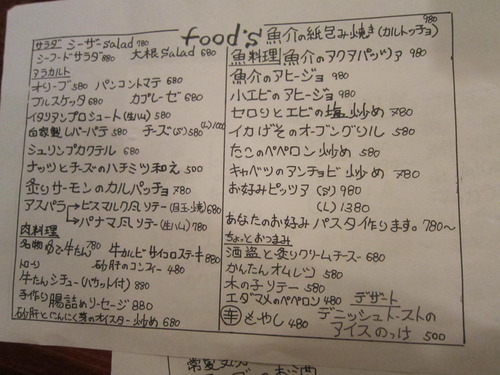 food's
サラダ シーザーsalad 780
シーフードサラダ 880 大根salad 680
アラカルト
オリーブ 580 パンコントマテ 680
ブルスケッタ 680 カプレーゼ 680
イタリアンプロシュート(生ハム) 580
白家製レバーパテ 580 チーズ(S) 580 (L) 1000
シュリンプカクテル 680
ナッツとチーズのハチミツ和え 500
炙りサーモンのカルパッチョ 780
アスパラ→ビスマルク風ソテー(目玉焼) 680
→パナマ風ソテー(生ハム) 780
肉料理
名物ゆで牛たん 780 牛カルビサイコロステーキ 880
砂肝のコンフィー 480
牛たんシチュー(バケット付) 880
手作り腸詰めソーセージ 880
砂肝とにんにく芽のオイスター炒め 680
魚介の紙包み焼き(カルトッチョ) 980
魚料理 魚介のアクアパッツァ 980
魚介のアヒージョ 780
小エビのアヒージョ 680
セロリとエビの塩炒め 780
イカげそのオーブングリル 580
たこのペペロン炒め 580
キャベツのアンチョビ炒め 780
お好みピッツァ (S) 980
(L) 1380
あなたのお好みパスタ作ります。780～
ちょっとおつまみ
酒盗と炙りクリームチーズ 680
かんたんオムレツ 580
木の子ソテー 580
エダマメのペペロン 480
辛もやし 480
デザート
デニッシュトーストの
アイスのっけ 500